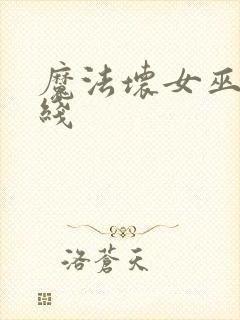 魔法壞女巫
綫
洛蒼天